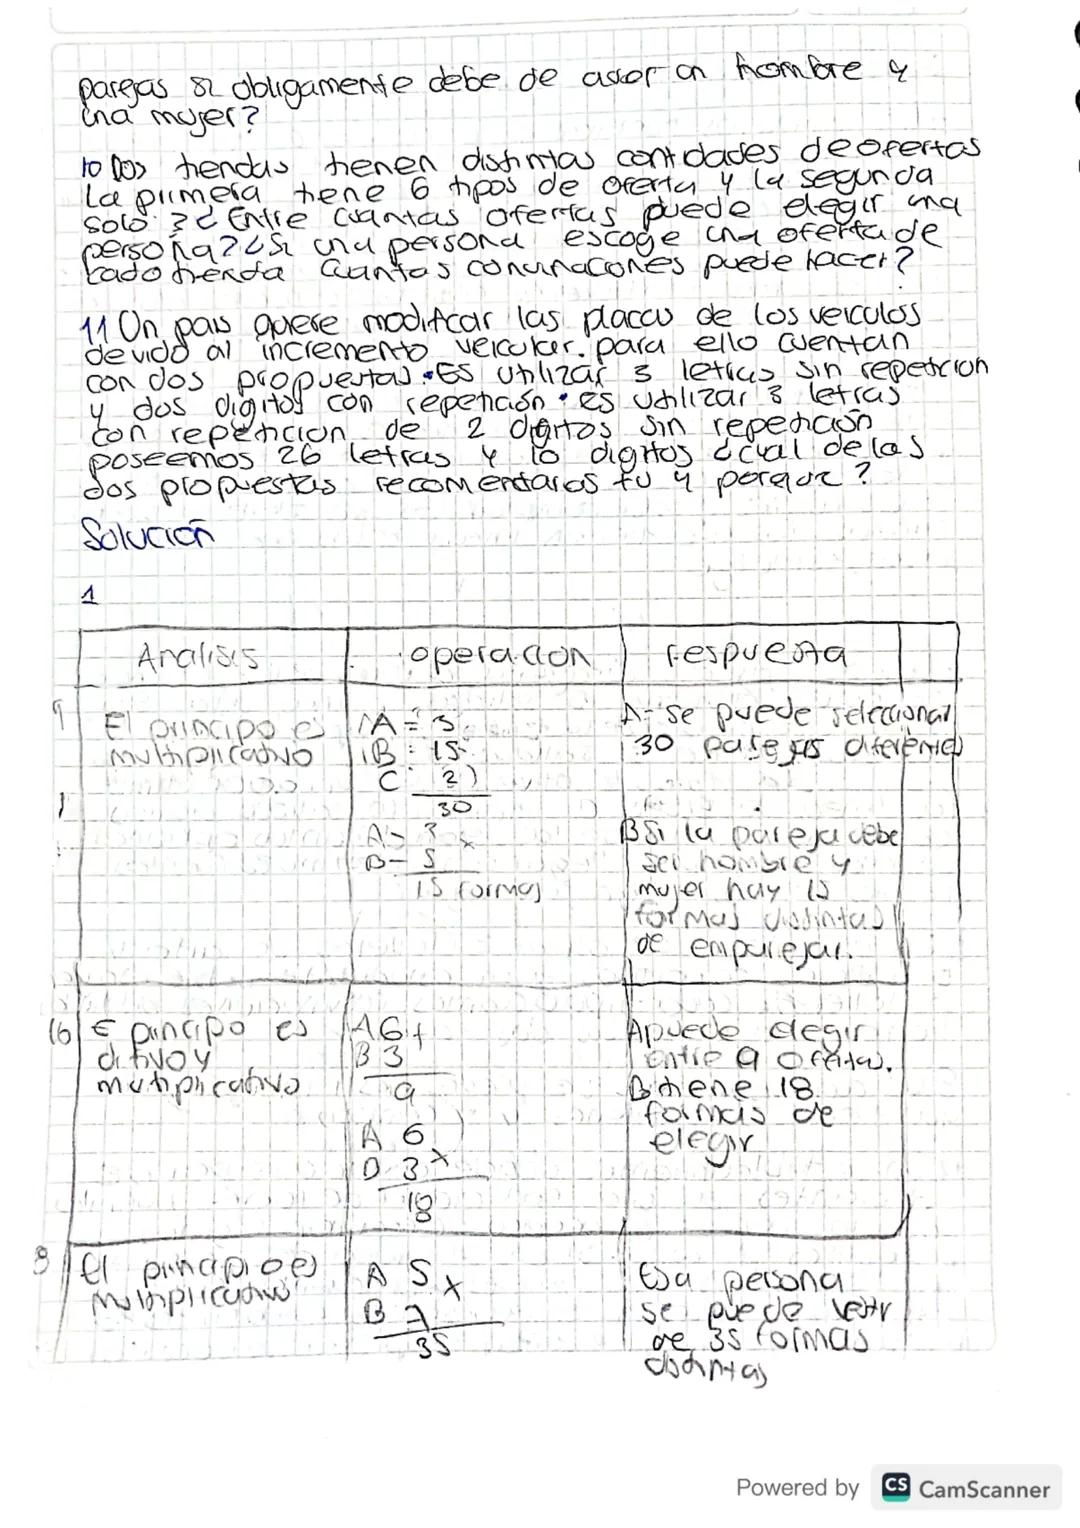 parejas si obligamente debe de aver on hombre y
una mujer?
10 Dos tiendas tienen distintas contidades de ofertas
La primera tiene 6 tipos de oferta y la segunda
solo 3 ¿ Entre cuantas ofertas puede elegir una
persona? ¿Si una persona escoge una oferta de
cado tienda cuantas convinaciones puede hacer?
11 Un pais quiere modificar las placas de los veiculos
devido al incremento veicular. para ello cuentan
con dos propuestas • Es utilizar 3 letras sin repeticion
y dos digitos con repetición • es utilizar 3 letras
con repeticion de 2 digitos sin repetición
poseemos 26 letras y 10 digitos ¿cual de las
dos propuestas recomendarias tu y porque?
Solución
1
Analisis operacion respuesta
9 El principo es multiplicativo
A = 3
B : 15
C : 2)
30
A - 3 x
B - 5
15 formas
A- se puede seleccional
30 parejas diferentes
B Si la pareja debe
ser hombre y
mujer hay 15
formas distintas
de emparejar.
10 E principo es
ditivo y
multiplicativo
A 6 +
B 3
9
A 6
D 3 x
18
A puede elegir
entre 9 ofertas.
B tiene 18
formas de
elegir
8 El principio es
multiplicativo
A 5 x
B 7
35
Esa persona
se puede vestir
de 35 formas
distintas
Powered by CS CamScanner